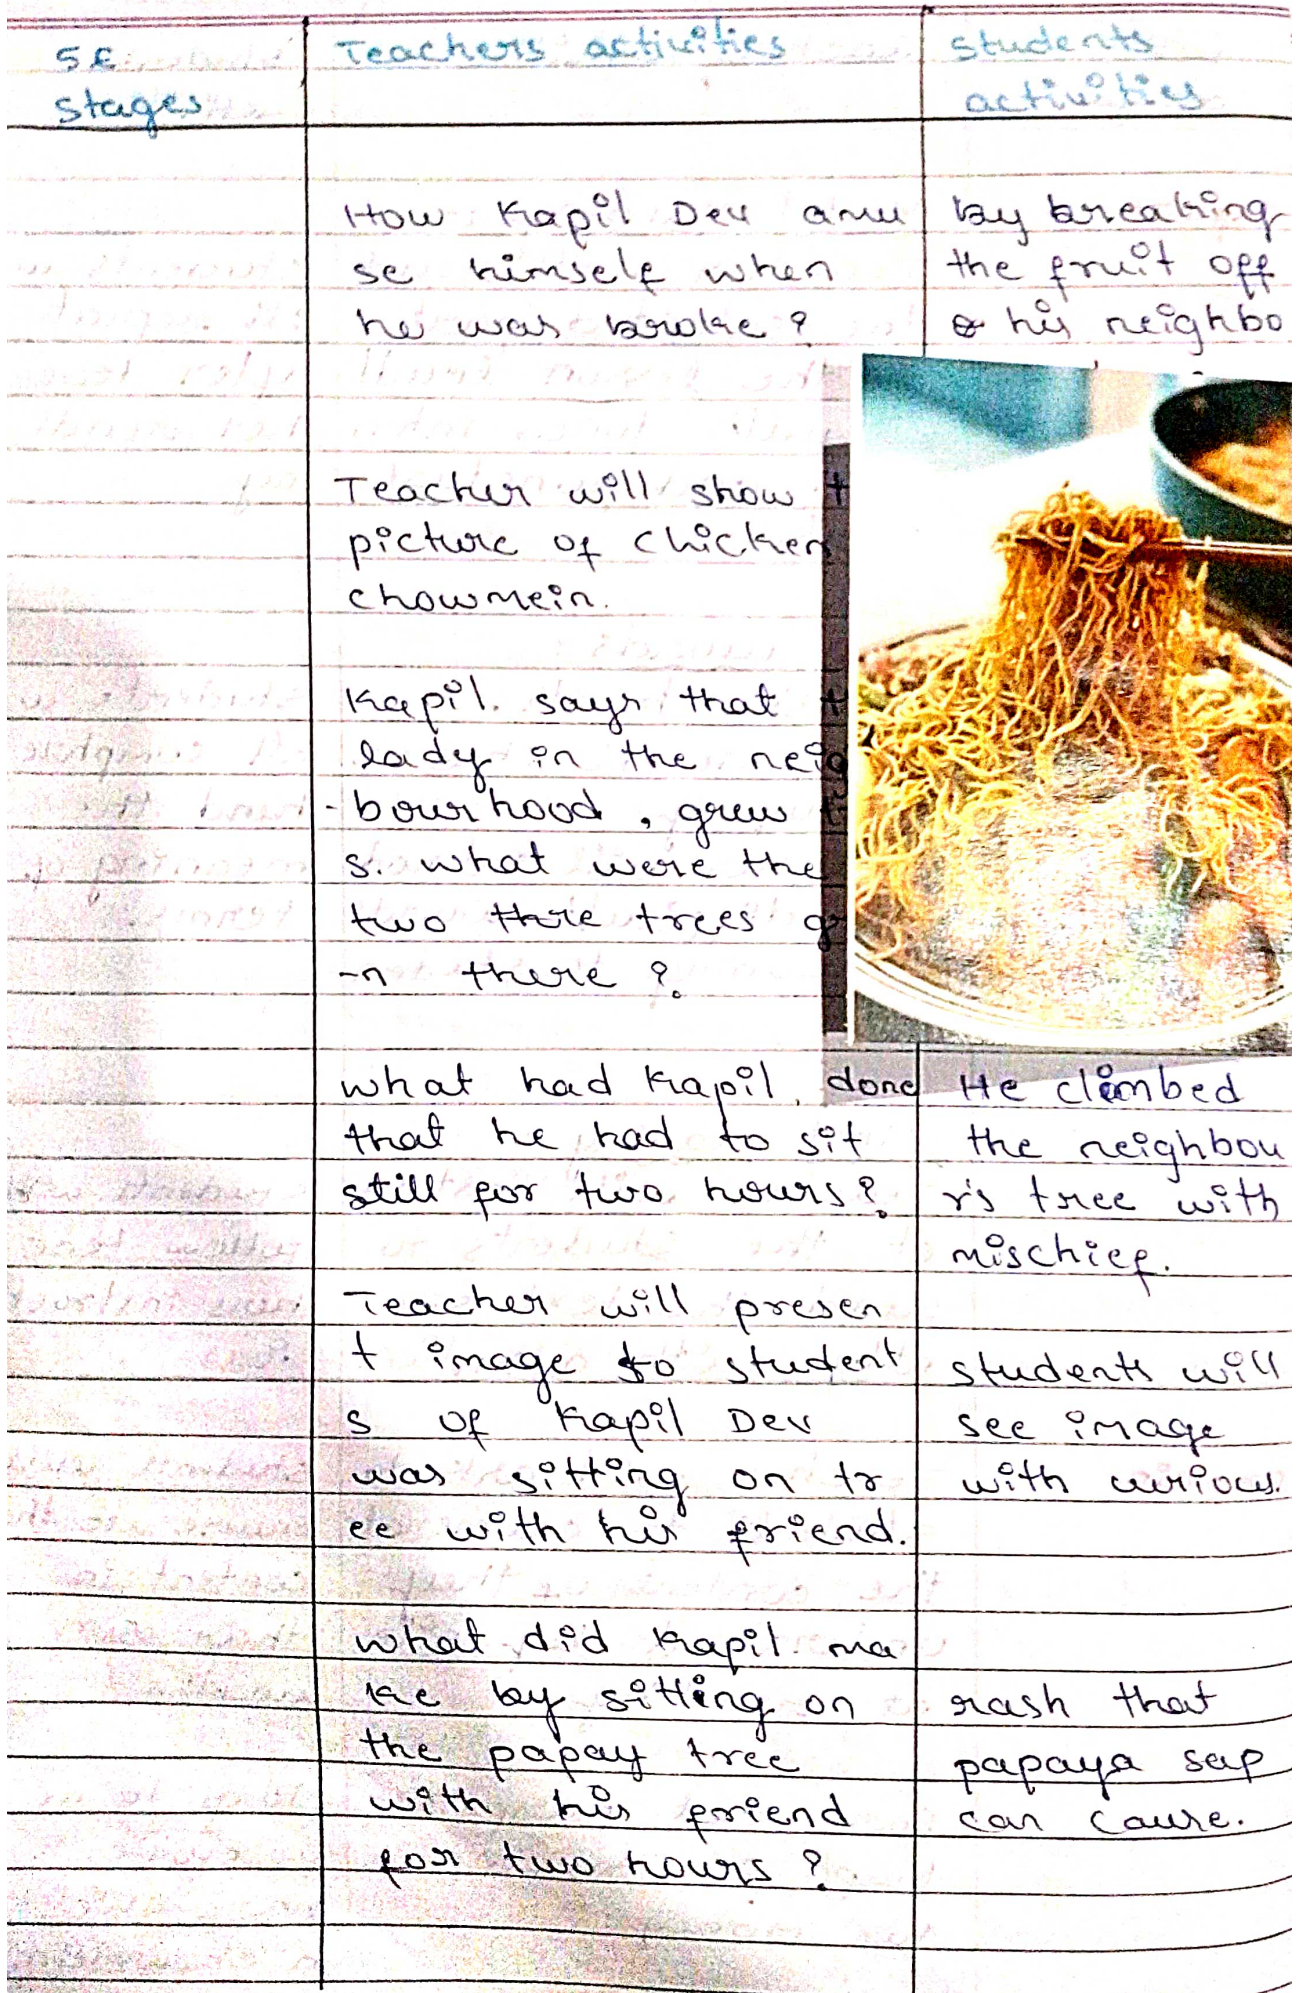 5E
stages
Teachers activities
Students
activities
How Kapil Dev amu
se himself when
he was broke ?
by breaking
the fruit off
his neighbo
Teacher will show
picture of chicken
chowmein.
Kapil says that
lady in the neig
-bourhood, grew
s. what were the
two three trees
-n there ?
what had Kapil done
that he had to sit
still for two hours ?
He climbed
the neighbou
r's tree with
mischief.
Teacher will presen
t image to student
s of Kapil Dev
was sitting on tr
ee with his friend.
students will
see image
with curious.
what did Kapil ma
ke by sitting on
the papay tree
with his friend
for two hours ?
rash that
papaya sap
can cause.